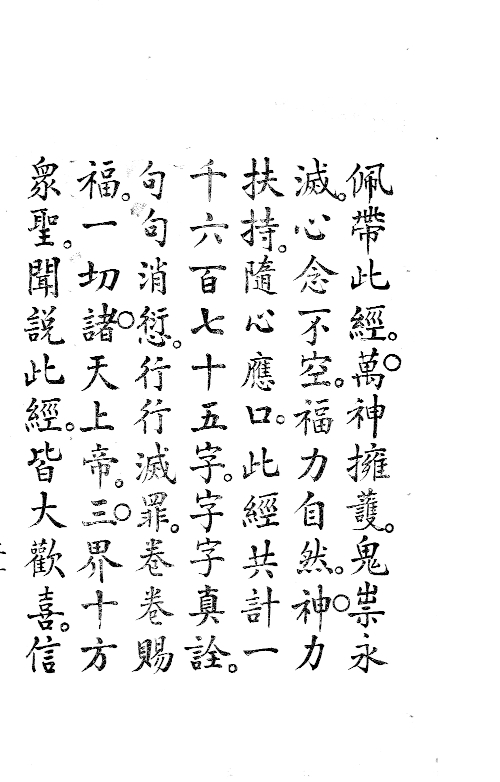 佩帶此經。萬神擁護。鬼祟永
滅。心念不空。福力自然。神力
扶持。隨心應口。此經共計一
千六百七十五字。字字真詮。
句句消愆。行行滅罪。卷卷賜
福。一切諸天上帝。三界十方
衆聖。聞說此經。皆大歡喜。信